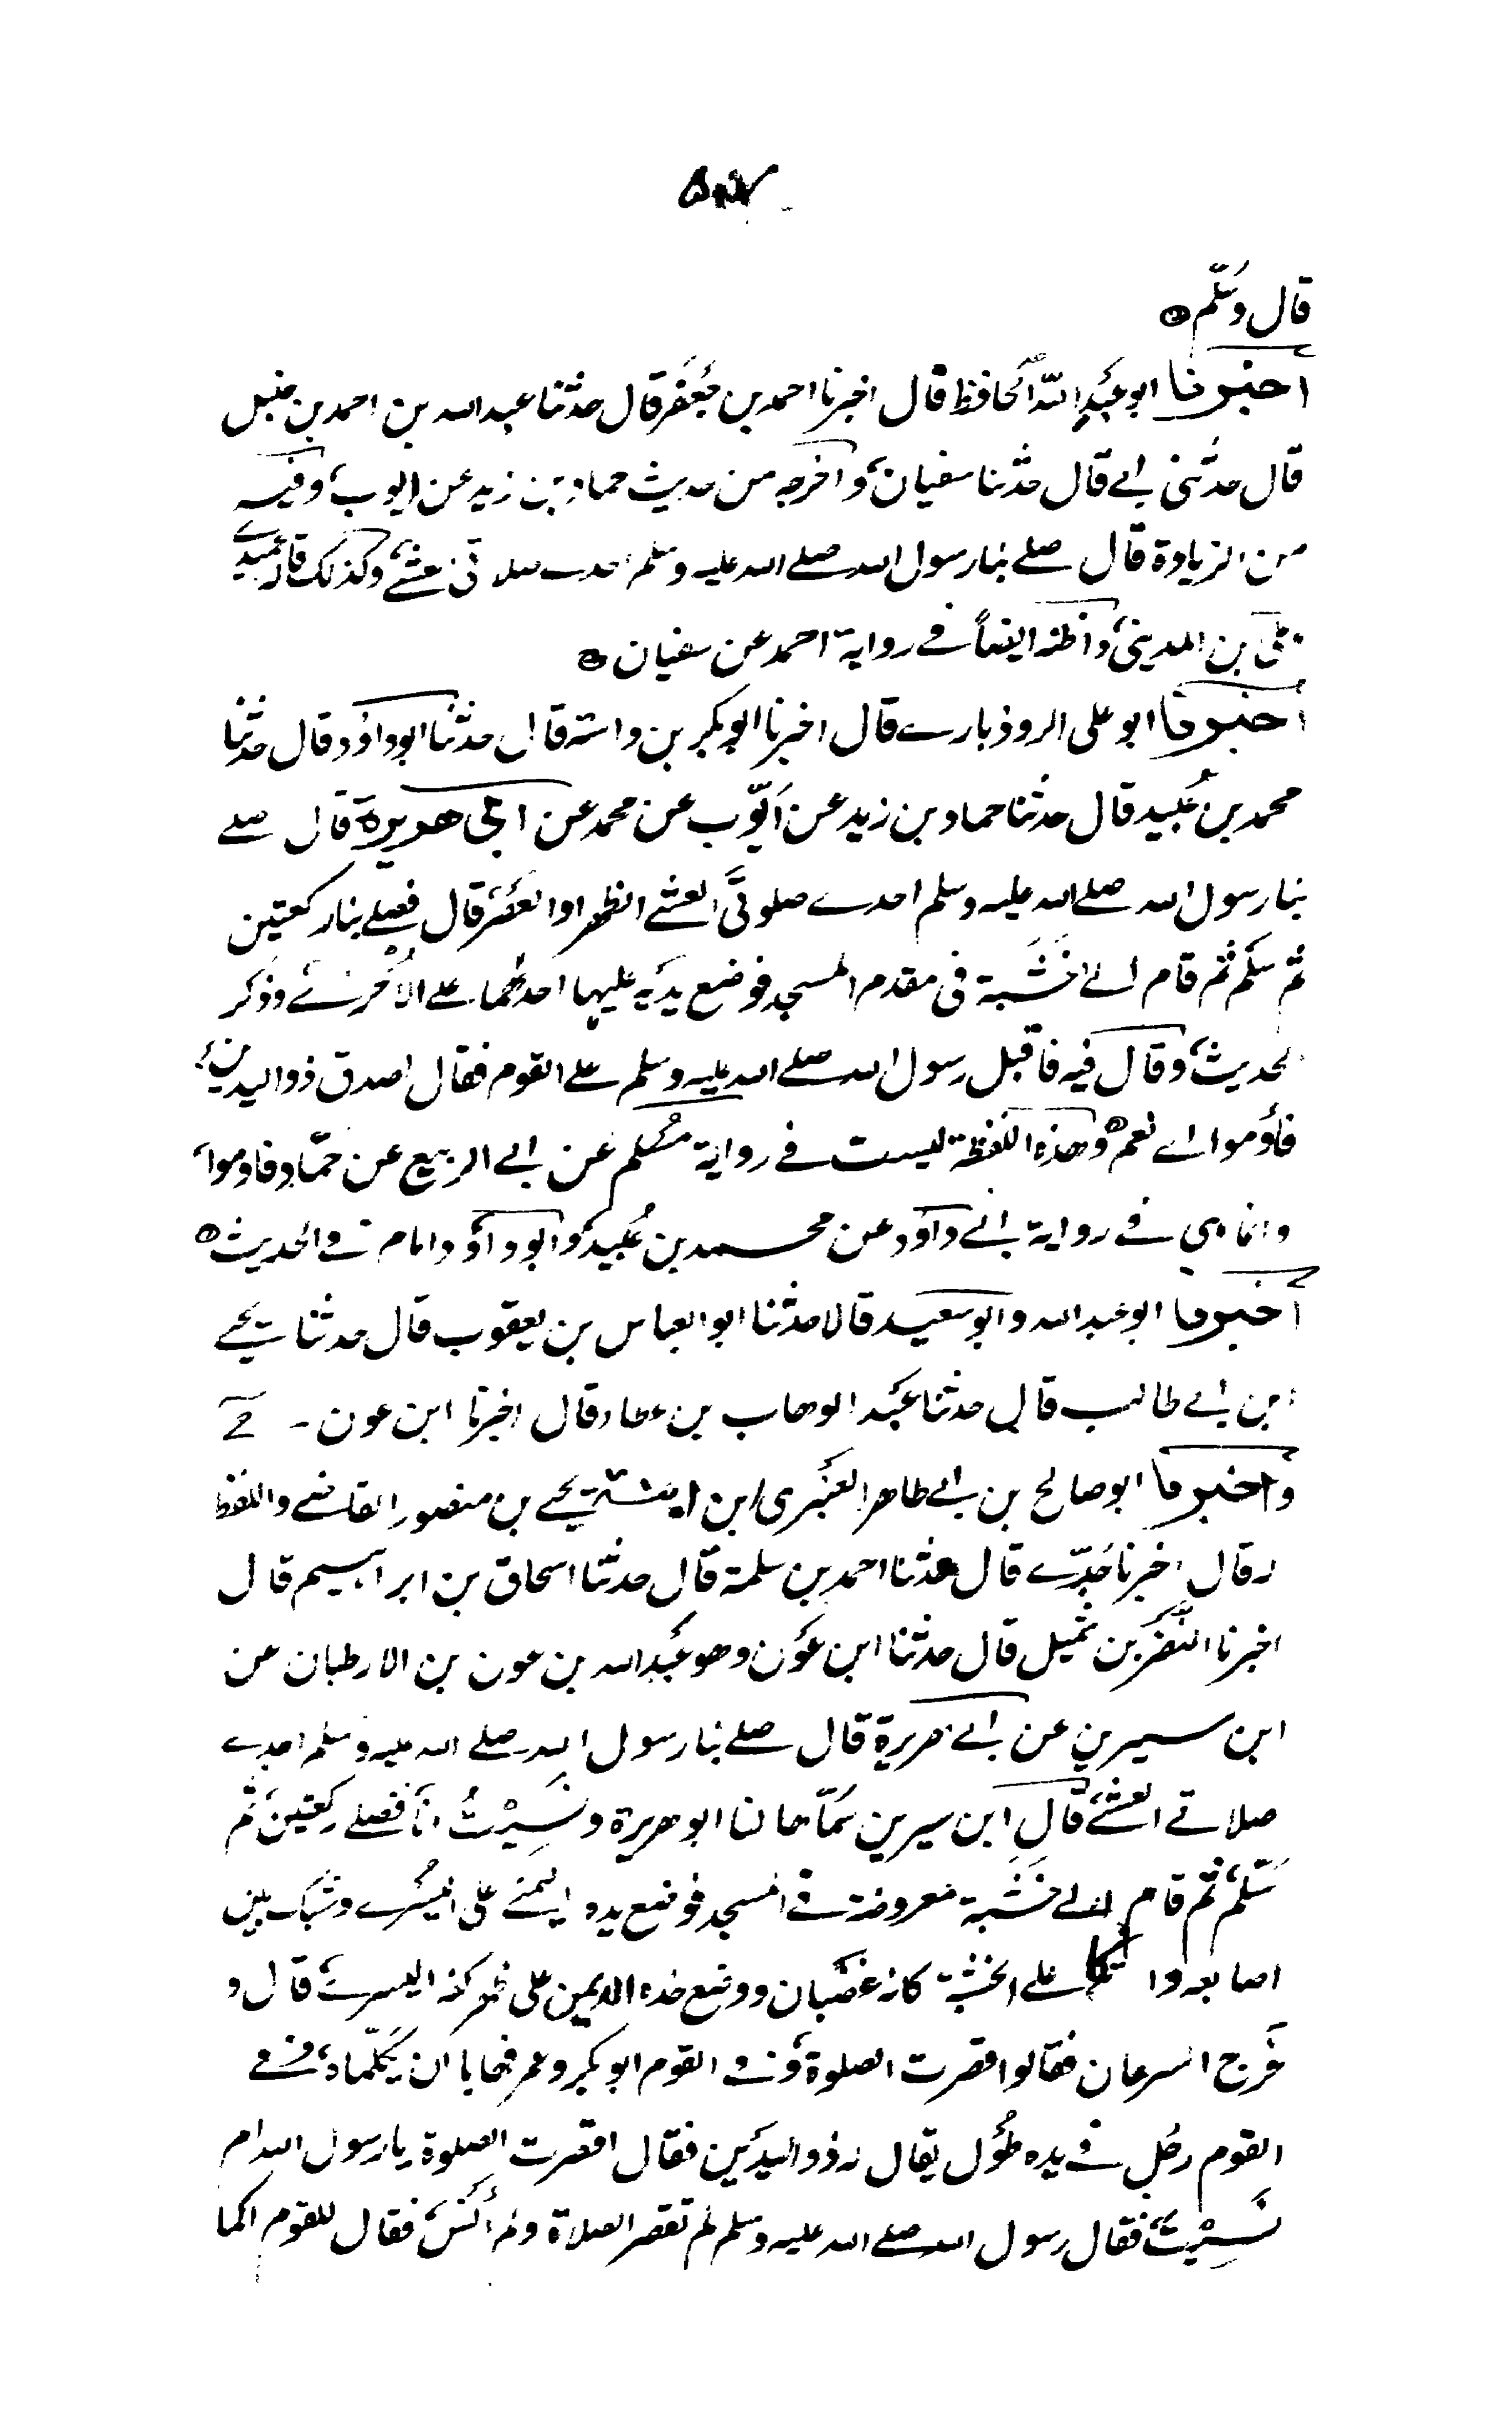 قال وسلم
اخبرنا ابو عبد الله الحافظ قال اخبرنا احمد بن جعفر قال حدثنا عبد الله بن احمد بن حنبل
قال حدثنى ابي قال حدثنا سفيان واخرجه من حديث حماد بن زيد عن ايوب وفيه
من الزيادة قال صلے بنا رسول الله صلے الله عليه وسلم احدے صلاتى عشے وكذلك قاله حميدے
على بن المدينى واظنه ايضاً فے رواية احمد عن سفيان
اخبرنا ابو على الروذبارے قال اخبرنا ابو بكر بن داسته قال حدثنا ابوداؤد قال حدثنا
محمد بن عُبيد قال حدثنا حماد بن زيد عن اَيّوب عن محمد عن ابى هريرة قال صلے
بنا رسول الله صلے الله عليه وسلم احدے صلوتَى العشے الظهر او العصر قال فصلے بنا ركعتين
ثم سلم ثم قام الے خَشَبة فى مقدم المسجد فوضع يديه عليهما احدٰهما علے الاُخرٰے وذكر
الحديث وقال فيه فاقبل رسول الله صلے الله عليه وسلم علے القوم فقال اصدق ذو اليدين
فأومواے نعم وهذه اللفظة ليست فے رواية مُسلم عن ابے الربيع عن حمّاد فاوموا
وانما هى فے رواية ابے داؤد عن محمد بن عُبيد وابو داؤد امام فے الحديث
اخبرنا ابو عبد الله وابو سعيد قالا حدثنا ابو العباس بن يعقوب قال حدثنا يحے
ابن ابے طالب قال حدثنا عبد الوهاب بن عطاء قال اخبرنا ابن عون - ح
واخبرنا ابو صالح بن ابے طاهر العنبرى ابن ابنة يحے بن منصور القاضے واللفظ
له قال اخبرنا جَدّے قال حدثنا احمد بن سلمة قال حدثنا اسحاق بن ابراهيم قال
اخبرنا النَّضر بن شميل قال حدثنا ابن عَوْن وهو عَبد الله بن عون بن الارطبان عن
ابن سيرين عن ابے هريرة قال صلے بنا رسول الله صلے الله عليه وسلم احدے
صلاتے العشے قال ابن سيرين سَمّاها لنا ابو هريرة ونَسِيْتُ انا فصلے ركعتين ثم
سَلّم ثم قام الے خَشَبة معروضة فے المسجد فوضع يده اليمنے على اليُسرے وشبك بين
اصابعه واتكا علے الخشبة كانه غضبان ووضع خده الايمن على ظهر كفه اليسرے قال و
خَرج السرعان فقالوا قصرت الصلوة وفے القوم ابو بكر وعمر فهابا ان يُكلّماه وفے
القوم رجُل فے يده طُول يقال له ذو اليدَين فقال اقصرت الصلوة يا رسول الله ام
نَسِيْتَ فقال رسول الله صلے الله عليه وسلم لم تقصر الصلاة ولم أنْسَ فقال للقوم اكما